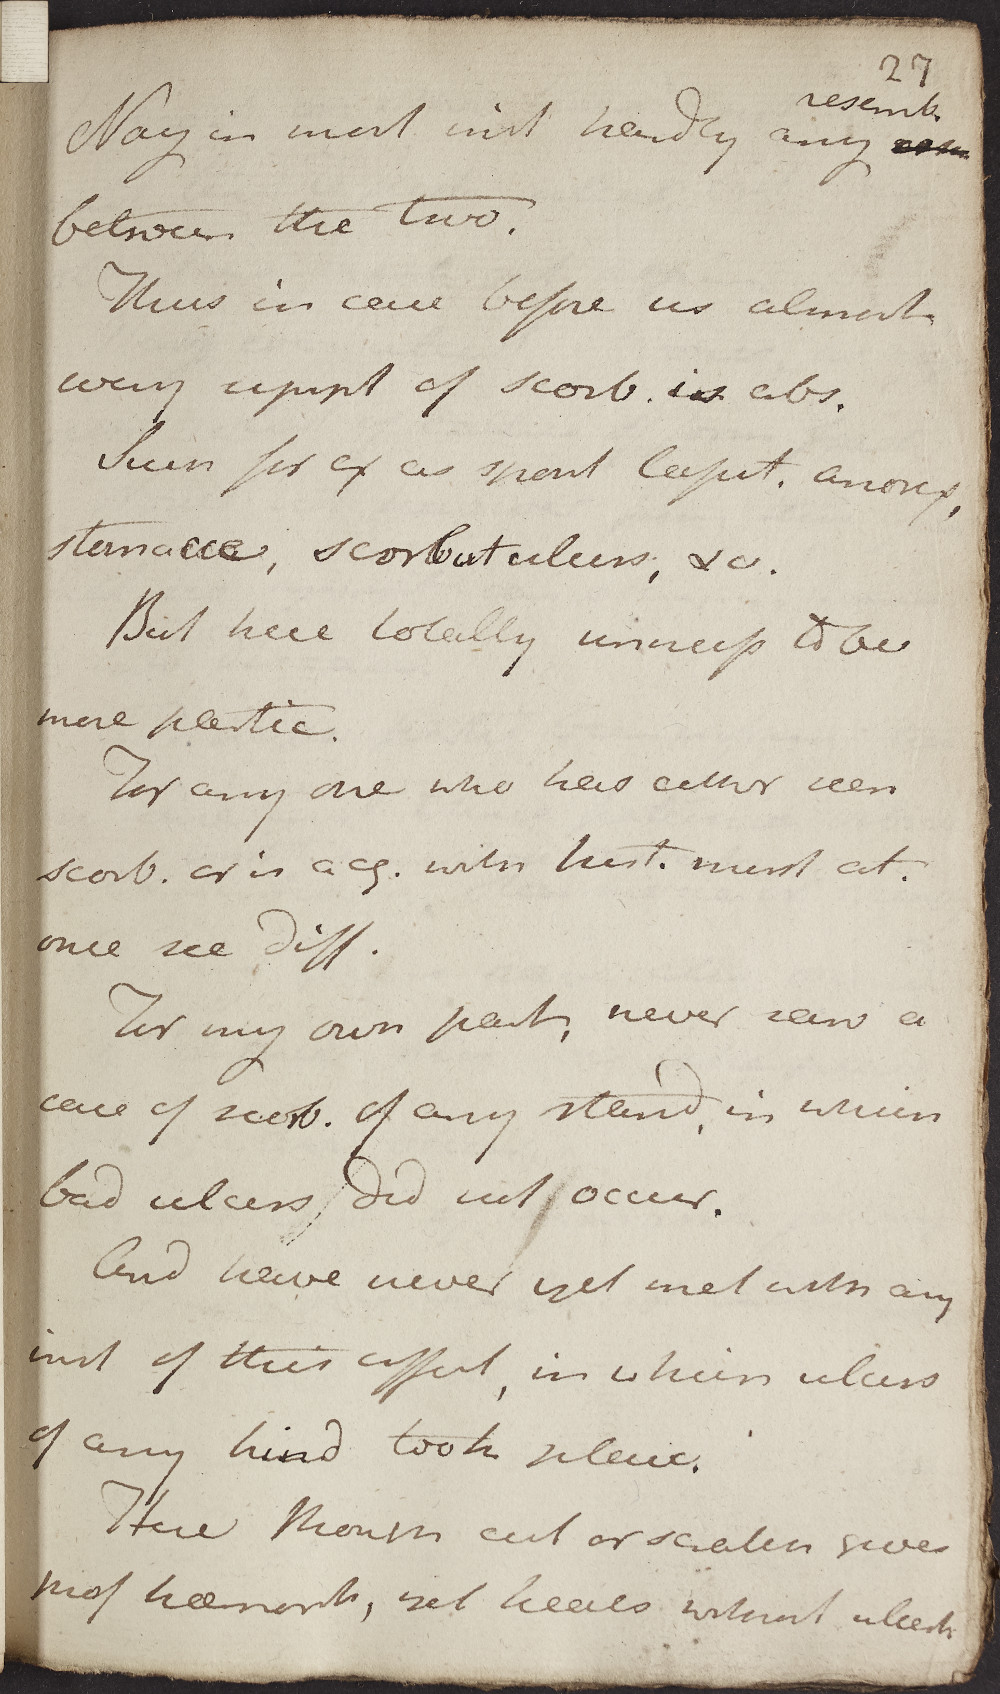 27
resemb.
Nay in most inst hardly any
between the two.
Thus in case before us almost
every sympt of scorb. is abs.
Such for ex as spont lassit. anorex,
stomacac, scorbut ulcers, &c.
But here totally unnecess to be
more partic.
For any one who has either seen
scorb. or is acq. with hist. must at.
once see diff.
For my own part, never saw a
case of scorb. of any stand, in which
bad ulcers did not occur.
And have never yet met with any
inst of this affect, in which ulcers
of any kind took place.
Here though cut or scratch gives
prof hæmorrh, yet heals without ulcerat